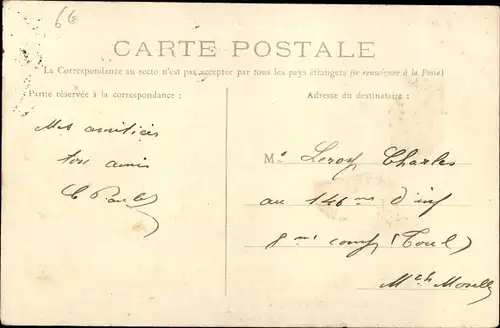 66
CARTE POSTALE
La Correspondance au recto n'est pas acceptée par tous les pays étrangers (se renseigner à la Poste)
Partie réservée à la correspondance :
Adresse du destinataire :
Mes amitiés
ton amis
M. Leroy Charles
au 146me d'inf
8me comp (Toul)
Mthe Moselle